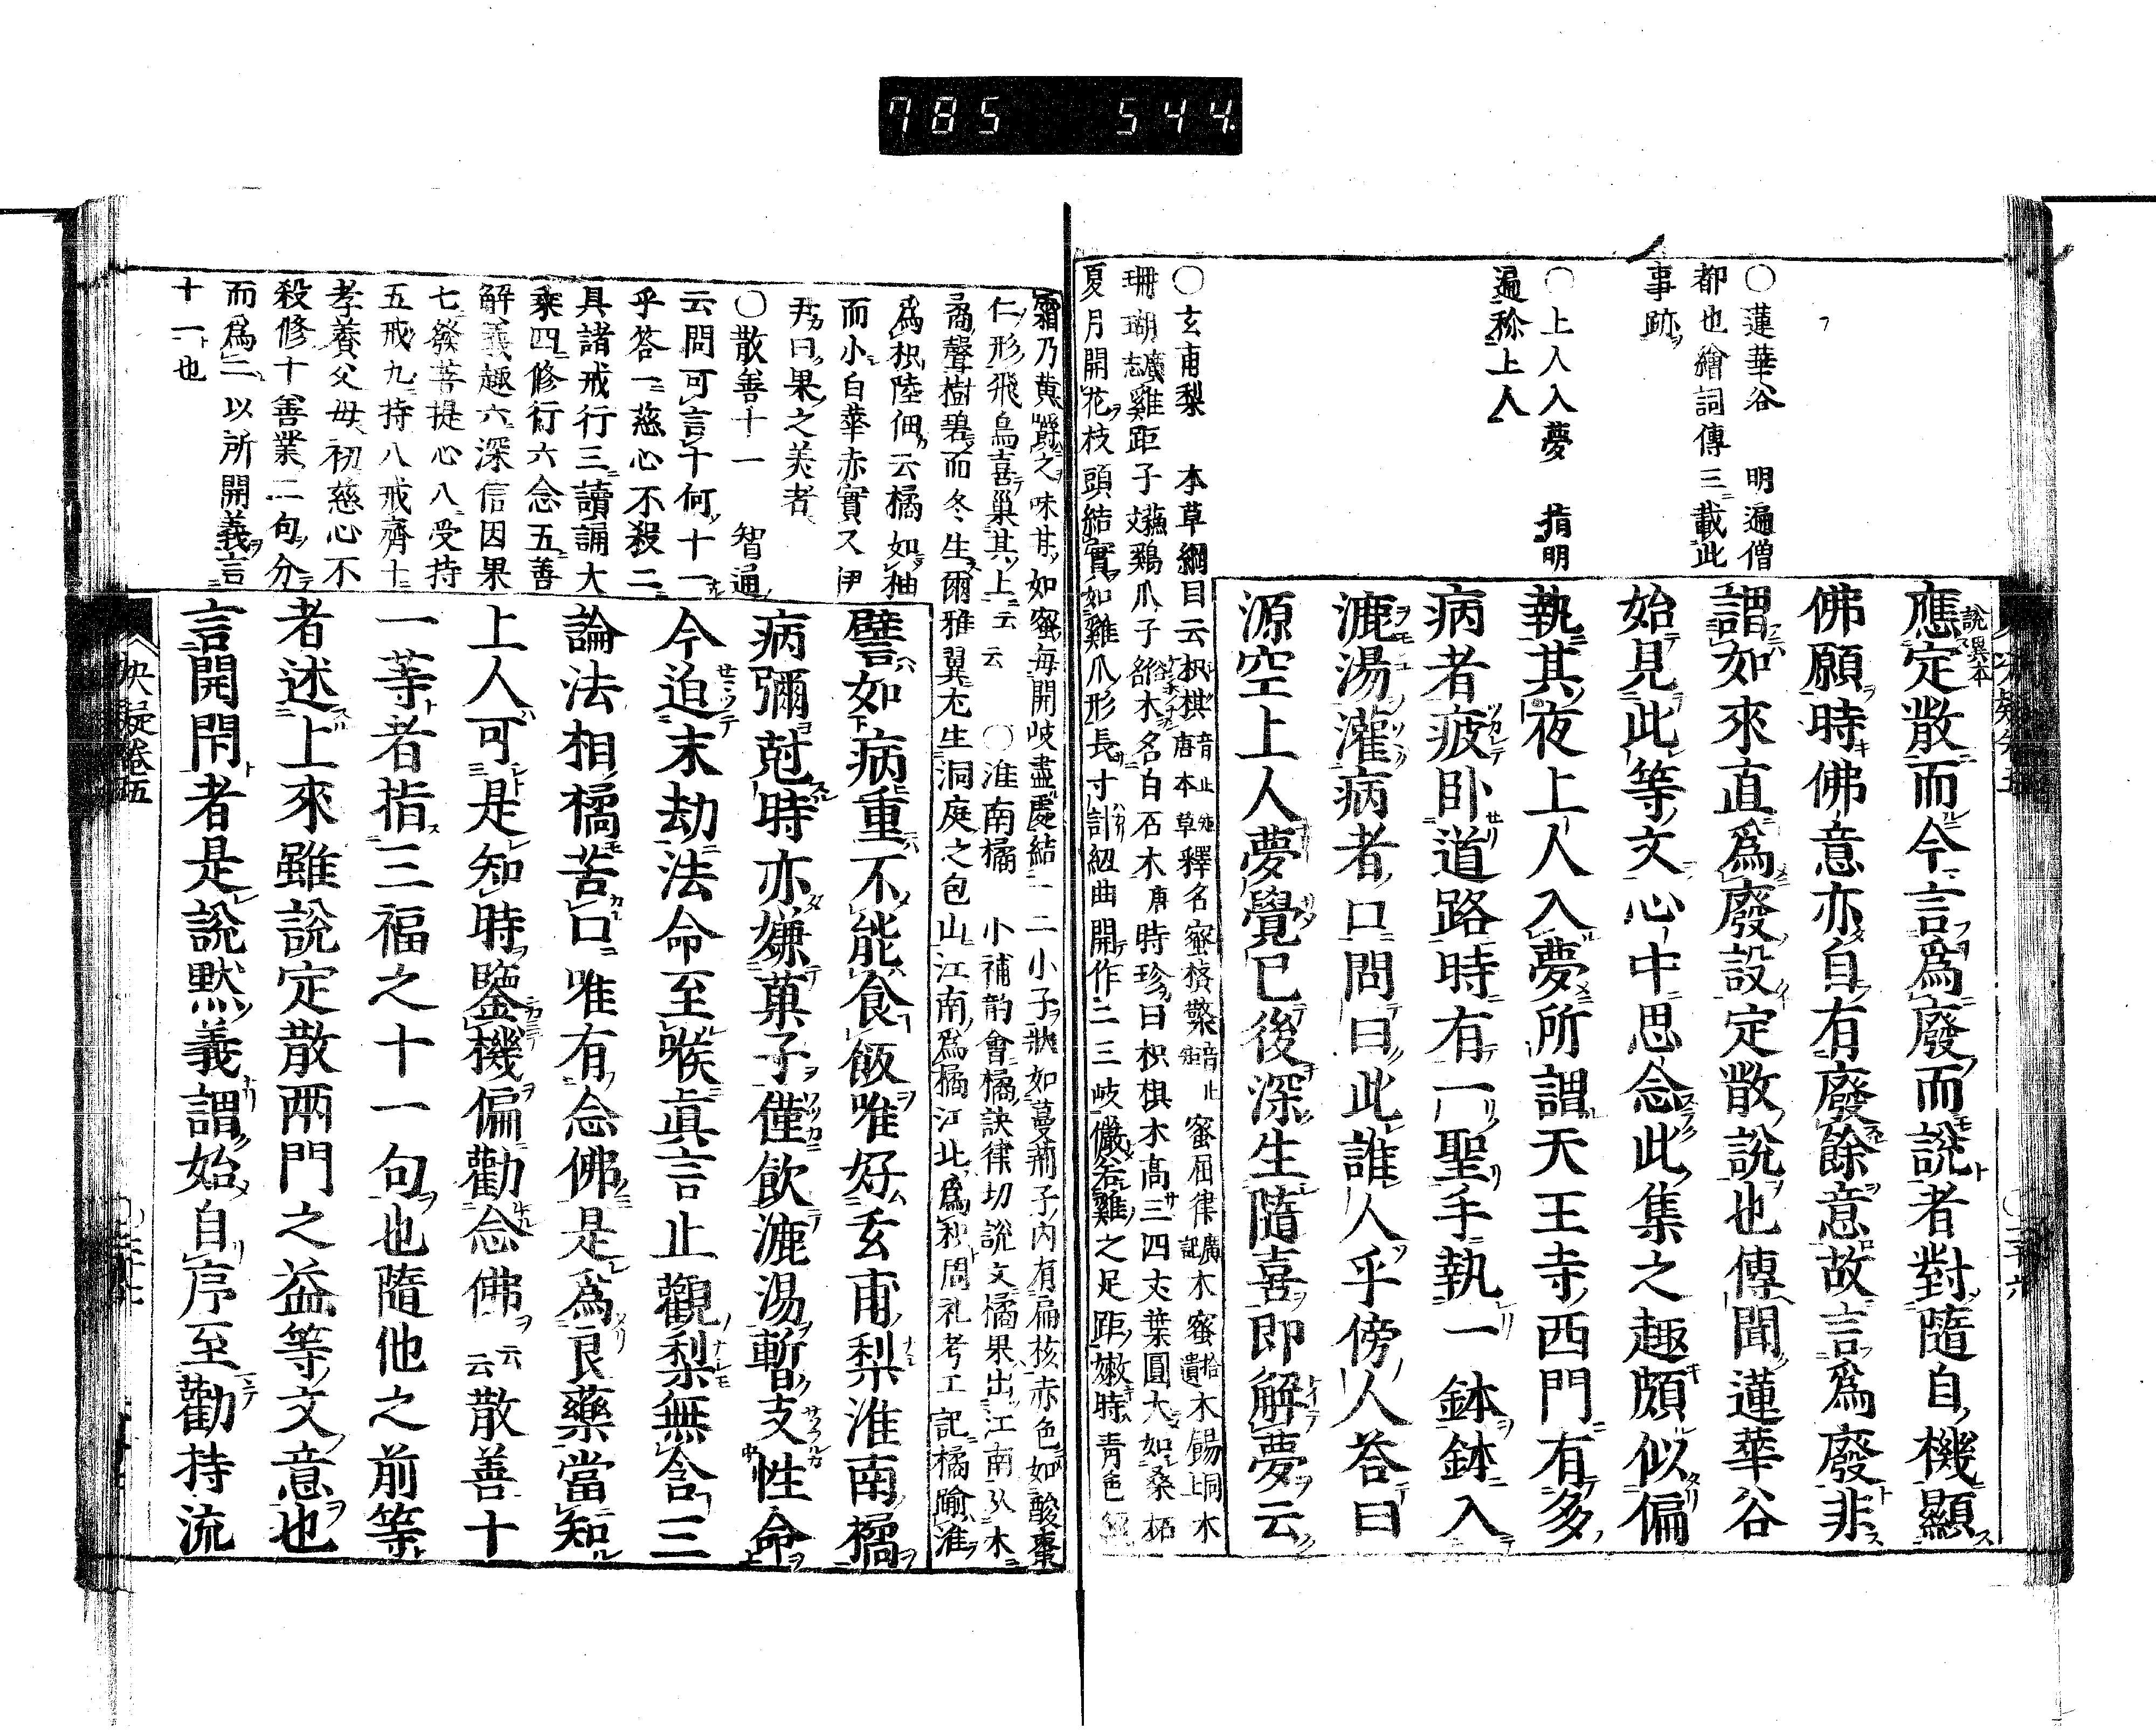 785 544
○蓮華谷 明遍僧
都也繪詞傳三載此
事跡
○上人入夢 指明
遍称上人
應定散而今言爲廢而說者對隨自機顯
說異本
佛願時佛意亦自有廢餘意故言爲廢非
謂如來直爲廢設定散說也傳聞蓮華谷
始見此等文心中思念此集之趣頗似偏
執其夜上人入夢所謂天王寺西門有多
病者疲卧道路時有一聖手執一鉢鉢入
漉湯灌病者口問曰此誰人乎傍人荅曰
源空上人夢覺已後深生隨喜即解夢云
○玄甫梨 本草綱目云枳椇音止矩唐本草釋名蜜㰆𣝕音止矩蜜屈律廣記木蜜拾遺木餳同上木
珊瑚廣志雞距子鷄爪子俗木名白石木唐時珍曰枳椇木高三四丈葉圓大如桑柘
夏月開花枝頭結實如雞爪形長寸許紐曲開作二三岐儼若雞之足距嫩時青色經
霜乃黃嚼之味甘如蜜每開岐盡處結一二小子狀如蔓荊子內有扁核赤色如酸棗
仁形飛鳥喜巢其上云云 ○淮南橘 小補韵會橘訣律切說文橘果出江南从木
矞聲樹碧而冬生爾雅翼尤生洞庭之包山江南爲橘江北爲枳周礼考工記橘踰淮
爲枳陸佃云橘如柚
而小白華赤實又伊
尹曰果之美者
○散善十一 智通
云問可言十何十一
乎荅一慈心不殺二
具諸戒行三讀誦大
乘四修行六念五善
解義趣六深信因果
七發菩提心八受持
五戒九持八戒齊十
孝養父母初慈心不
殺修十善業二句分
而爲二以所開義言
十一也
譬如病重不能食飯唯好玄甫梨淮南橘
病彌尅時亦嫌菓子僅飲漉湯暫支性命
今迫末劫法命至喉眞言止觀梨無含三
論法相橘苦口唯有念佛是爲良藥當知
上人可是知時鑒機偏勸念佛云云散善十
一等者指三福之十一句也隨他之前等
者述上來雖說定散兩門之益等文意也
言開閇者是說黙義謂始自序至勸持流
決疑卷五